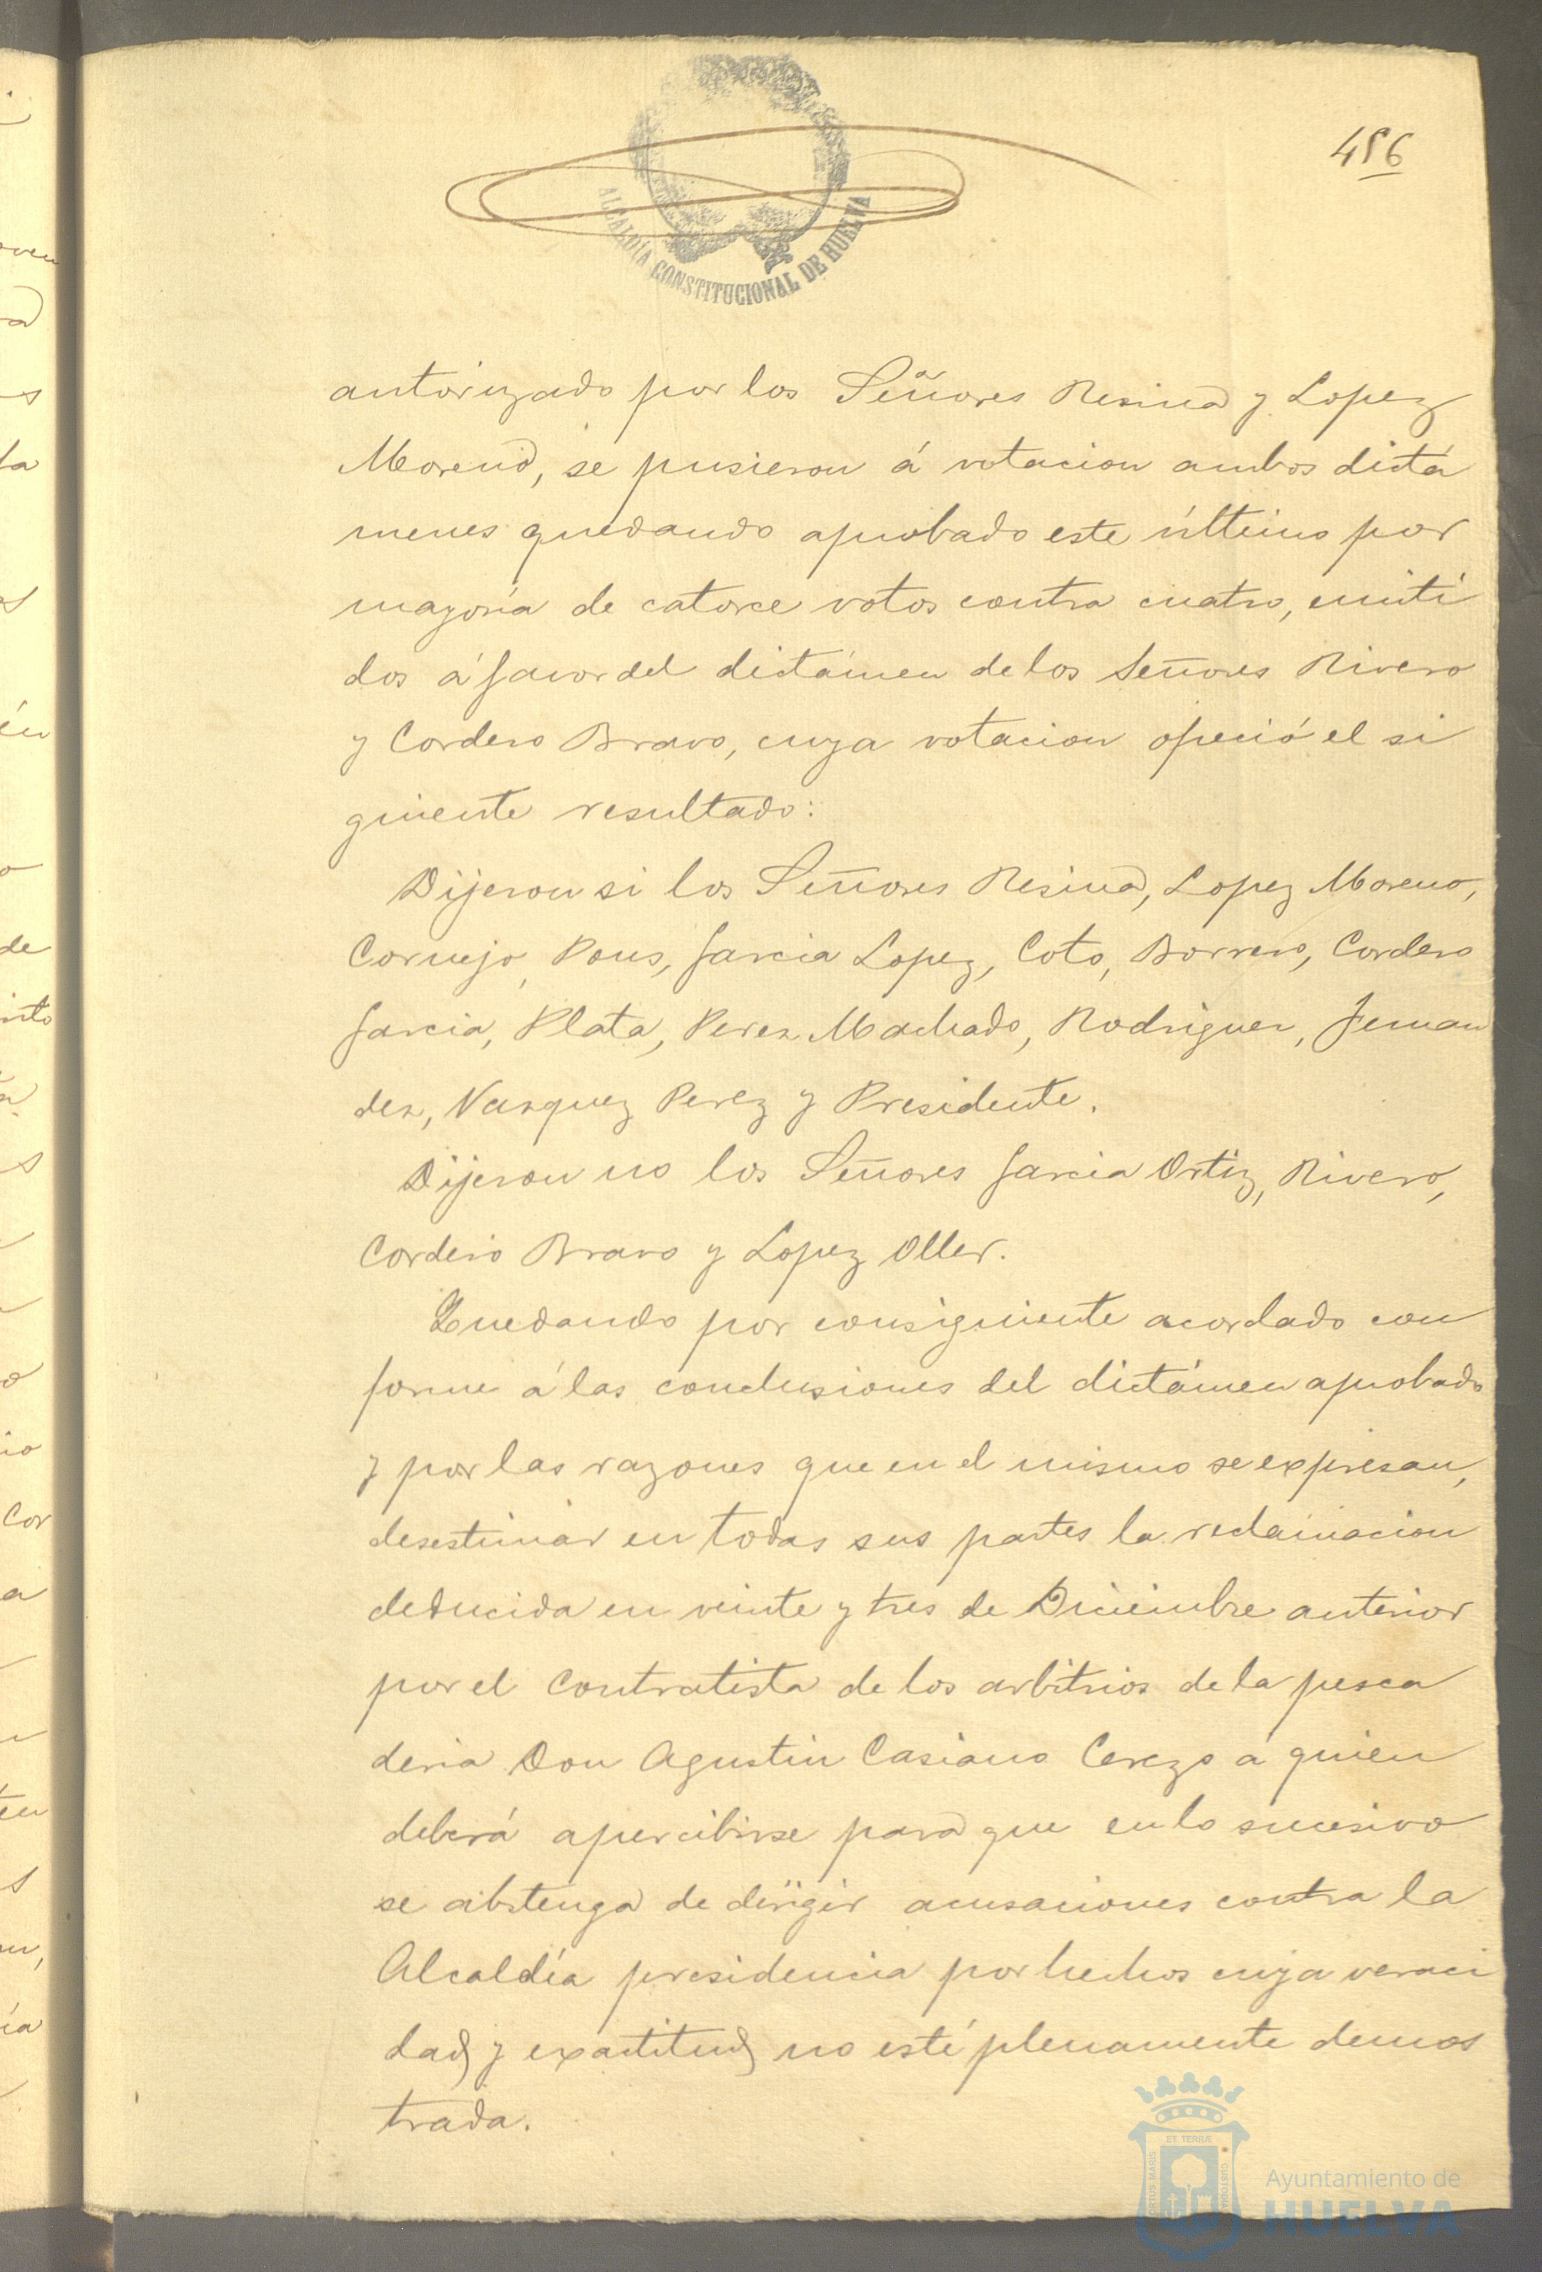 456
ALCALDÍA CONSTITUCIONAL DE HUELVA
autorizado por los Señores Resina y Lopez
Moreno, se pusieron á votacion ambos dictá
menes quedando aprobado este último por
mayoría de catorce votos contra cuatro, emiti
dos á favor del dictámen de los Señores Rivero
y Cordero Bravo, cuya votacion ofreció el si
guiente resultado:
Dijeron si los Señores Resina, Lopez Moreno,
Cornejo, Pons, Garcia Lopez, Coto, Borrero, Cordero
Garcia, Plata, Perez Machado, Rodriguez, Fernan
dez, Vazquez Perez y Presidente.
Dijeron no los Señores Garcia Ortiz, Rivero,
Cordero Bravo y Lopez Oller.
Quedando por consiguiente acordado con
forme á las conclusiones del dictámen aprobado
y por las razones que en el mismo se expresan,
desestimar en todas sus partes la reclamacion
deducida en veinte y tres de Diciembre anterior
por el contratista de los arbitrios de la pesca
deria Don Agustin Casiano Cerezo a quien
deberá apercibirse para que en lo sucesivo
se abstenga de dirigir acusaciones contra la
Alcaldía presidencia por hechos cuya veraci
dad y exactitud no esté plenamente demos
trada.
Ayuntamiento de
HUELVA